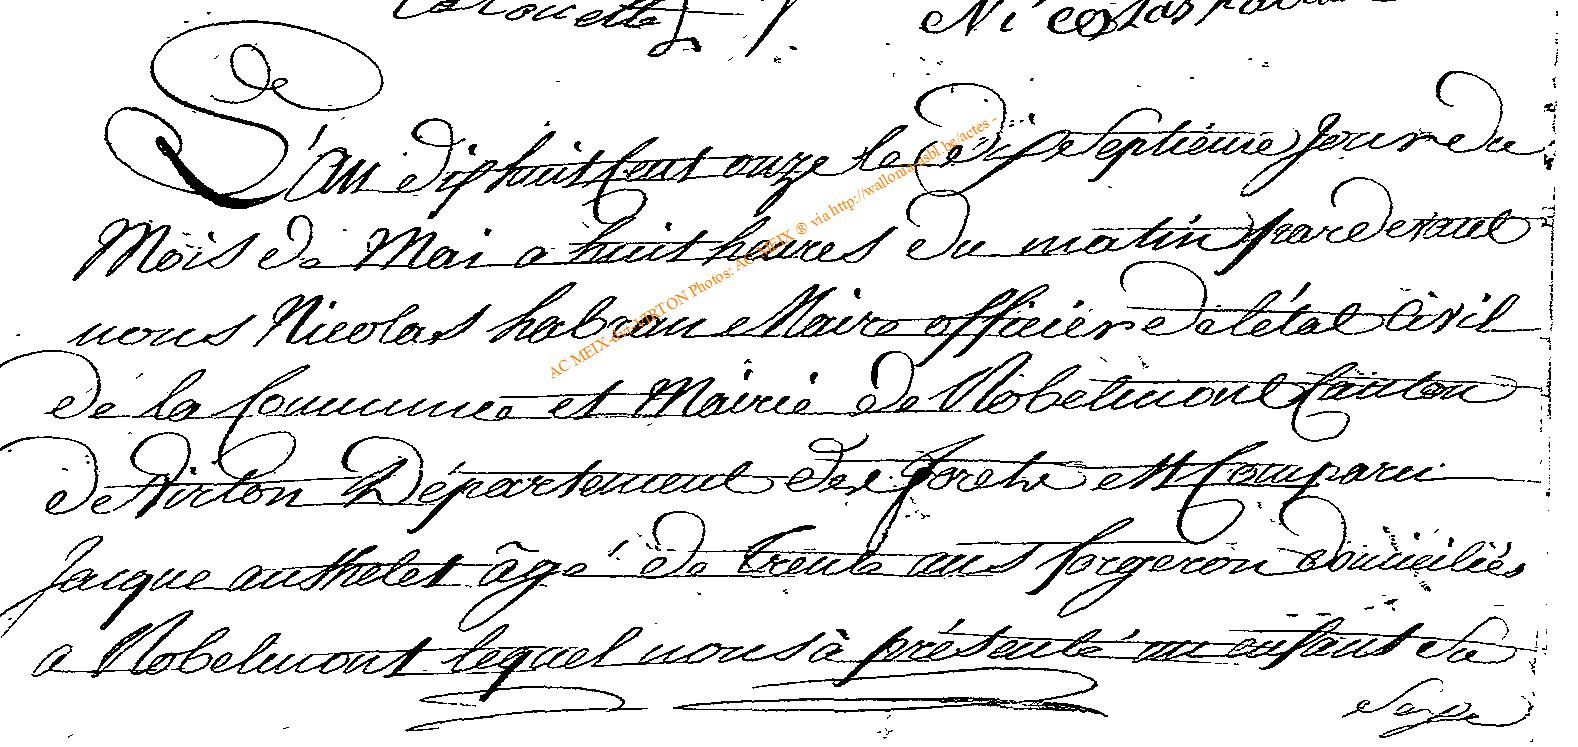 Nicolas
De
L'an dixhuit Cent onze le dix Septième Jour du
Mois de Mai a huit heures du matin pardevant
nous Nicolas habran Maire officier de l'état Civil
de la Commune et Mairie de Robelmont Canton
de Virton Département des forets est Comparu
Jacque authelet âgé de trente ans forgeron domiciliés
a Robelmont lequel nous à présenté un enfant du
Sexe
AC MEIX-dvt-VIRTON Photos: AC MEIX ® via http://wallonia-asbl.be/actes -